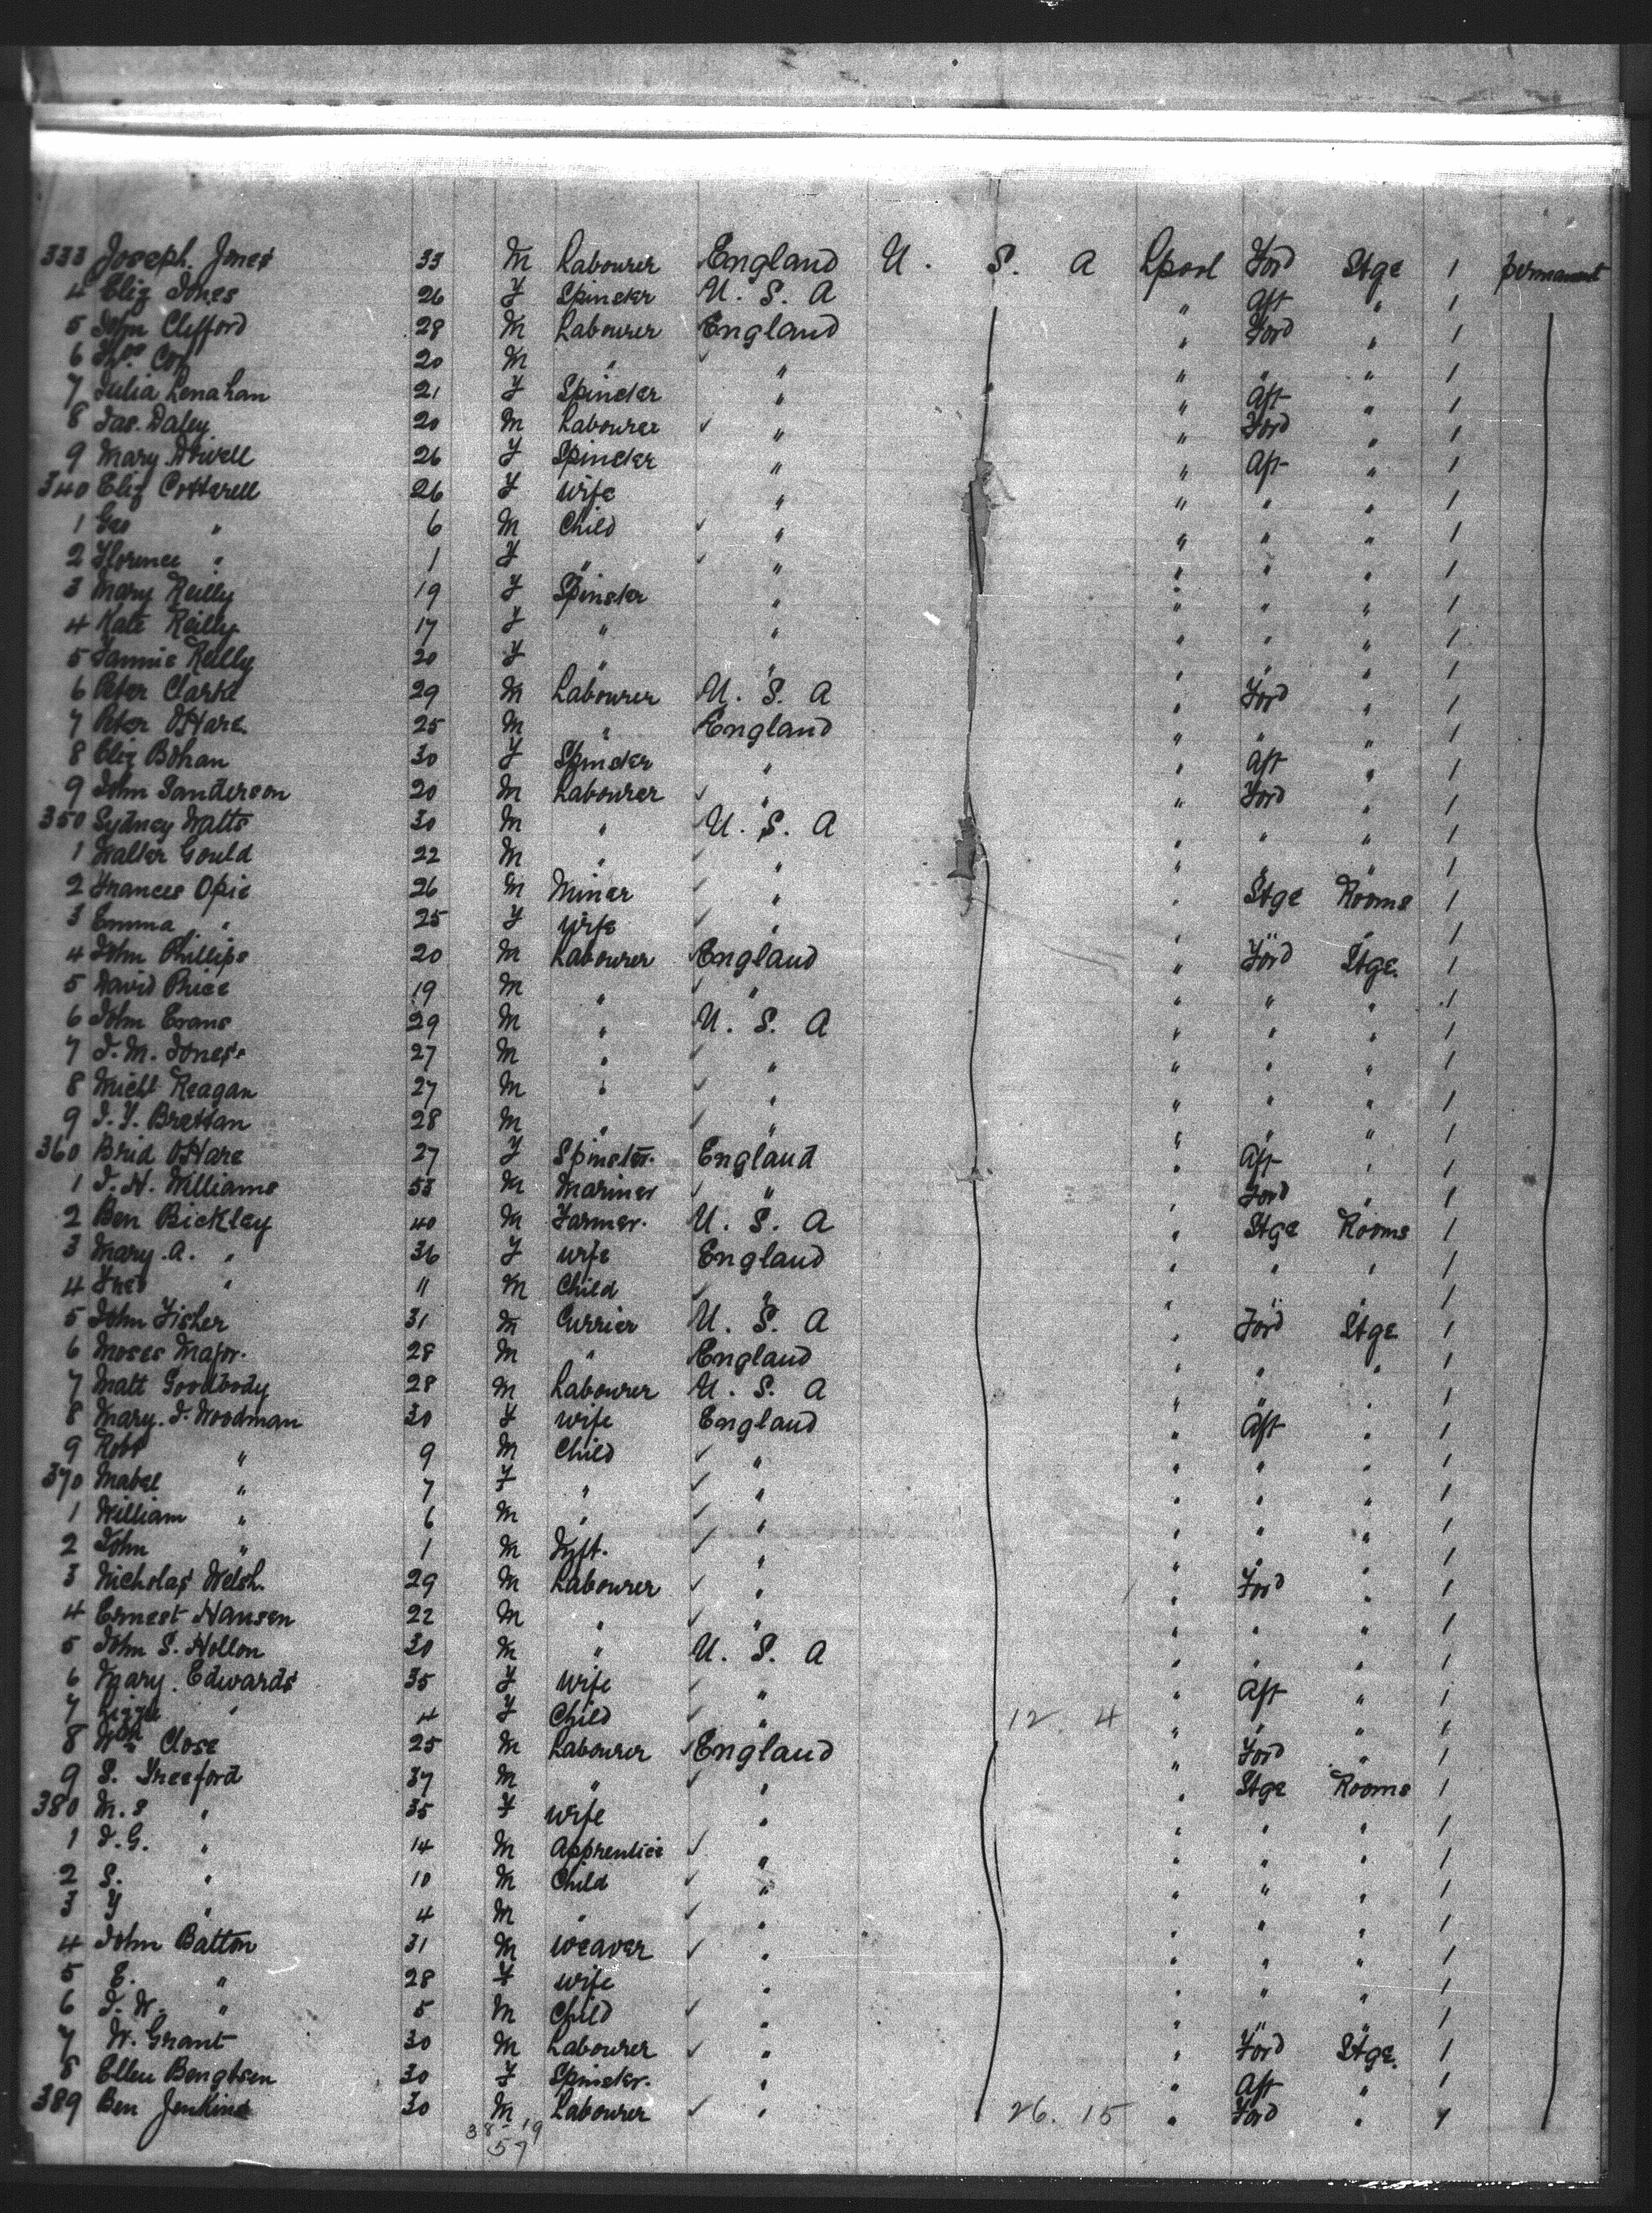 333 Joseph Jones 33 M Labourer England U. S. A Lpool Ford Stge 1 permanent
4 Eliz Jones 26 F Spinster U. S. A " Aft " 1
5 John Clifford 28 M Labourer England " Ford " 1
6 Thos Cox 20 M " " " " " 1
7 Julia Lenahan 21 F Spinster " " Aft " 1
8 Jas. Daley 20 M Labourer ✓ " " Ford " 1
9 Mary Dowell 26 F Spinster " " Aft " 1
340 Eliz Cotterell 26 F Wife " " " " 1
1 Geo " 6 M Child ✓ " " " " 1
2 Florence " 1 F " ✓ " " " " 1
3 Mary Reilly 19 F Spinster " " " " 1
4 Kate Reilly 17 F " " " " " 1
5 Fannie Reilly 20 F " " " " " 1
6 Peter Clarke 29 M Labourer U. S. A " Ford " 1
7 Peter O'Hare 25 M " England " " " 1
8 Eliz Bohan 30 F Spinster " " Aft " 1
9 John Sanderson 20 M Labourer ✓ " " Ford " 1
350 Sydney Watts 30 M " U. S. A " " " 1
1 Walter Gould 22 M " ✓ " " " " 1
2 Frances Opie 26 M Miner ✓ " " Stge Rooms 1
3 Emma " 25 F Wife ✓ " " " " 1
4 John Phillips 20 M Labourer England " Ford Stge. 1
5 David Price 19 M " ✓ " " " " 1
6 John Evans 29 M " U. S. A " " " 1
7 J. M. Jones 27 M " ✓ " " " " 1
8 Michl Reagan 27 M " ✓ " " " " 1
9 J. F. Brettan 28 M " ✓ " " " " 1
360 Brid O'Hare 27 F Spinster. England " Aft " 1
1 J. H. Williams 53 M Mariner ✓ " " Ford " 1
2 Ben Bickley 40 M Farmer. U. S. A " Stge Rooms 1
3 Mary. A. " 36 F Wife England " " " 1
4 Fred " 11 M Child ✓ " " " " 1
5 John Fisher 31 M Currier U. S. A " Ford Stge 1
6 Moses Major. 28 M " England " " " 1
7 Matt Goodbody 28 M Labourer U. S. A " " " 1
8 Mary. J. Woodman 30 F Wife England " Aft " 1
9 Robt " 9 M Child ✓ " " " " 1
370 Mabel " 7 F " ✓ " " " " 1
1 William " 6 M " ✓ " " " " 1
2 John " 1 M Inft. ✓ " " " " 1
3 Nicholas Welsh. 29 M Labourer ✓ " " Ford " 1
4 Ernest Hansen 22 M " ✓ " " " " 1
5 John S. Hollon 30 M " U. S. A " " " 1
6 Mary. Edwards 35 F Wife ✓ " " Aft " 1
7 Lizzie " 4 F Child ✓ " 12. 4 " " " 1
8 Wm Close 25 M Labourer England " Ford " 1
9 S. Treeford 37 M " ✓ " " Stge Rooms 1
380 M. S " 35 F Wife " " " " 1
1 J. G. " 14 M Apprentice ✓ " " " " 1
2 S. " 10 M Child ✓ " " " " 1
3 F " 4 M " ✓ " " " " 1
4 John Batton 31 M Weaver ✓ " " " " 1
5 E. " 28 F Wife " " " " 1
6 J. W. " 5 M Child ✓ " " " " 1
7 W. Grant 30 M Labourer ✓ " " Ford Stge. 1
8 Ellen Bengtsen 30 F Spinster. " " Aft " 1
389 Ben Jenkins 30 M Labourer ✓ " 26. 15 " Ford " 1
38-19
57